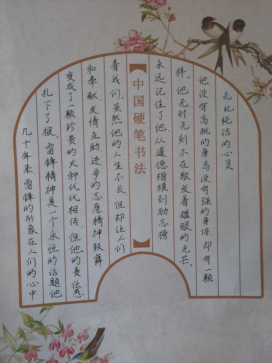 无比纯洁的心灵
他没有高挑的身高没有强的身体 却有一颗
他无时无刻不在散发着耀眼的光芒。
永远记住了他 从道德楷模到励志情
【中国硬笔书法】
着我们，虽然他的人生不长 但却让人们
和奉献友情互助 进步的志愿精神鼓舞
变成了一颗珍贵的火种代代相传 但他的责任感
扎下了根，雷锋精神是一个永恒的话题他
几十年来雷锋的形象在人们的心中